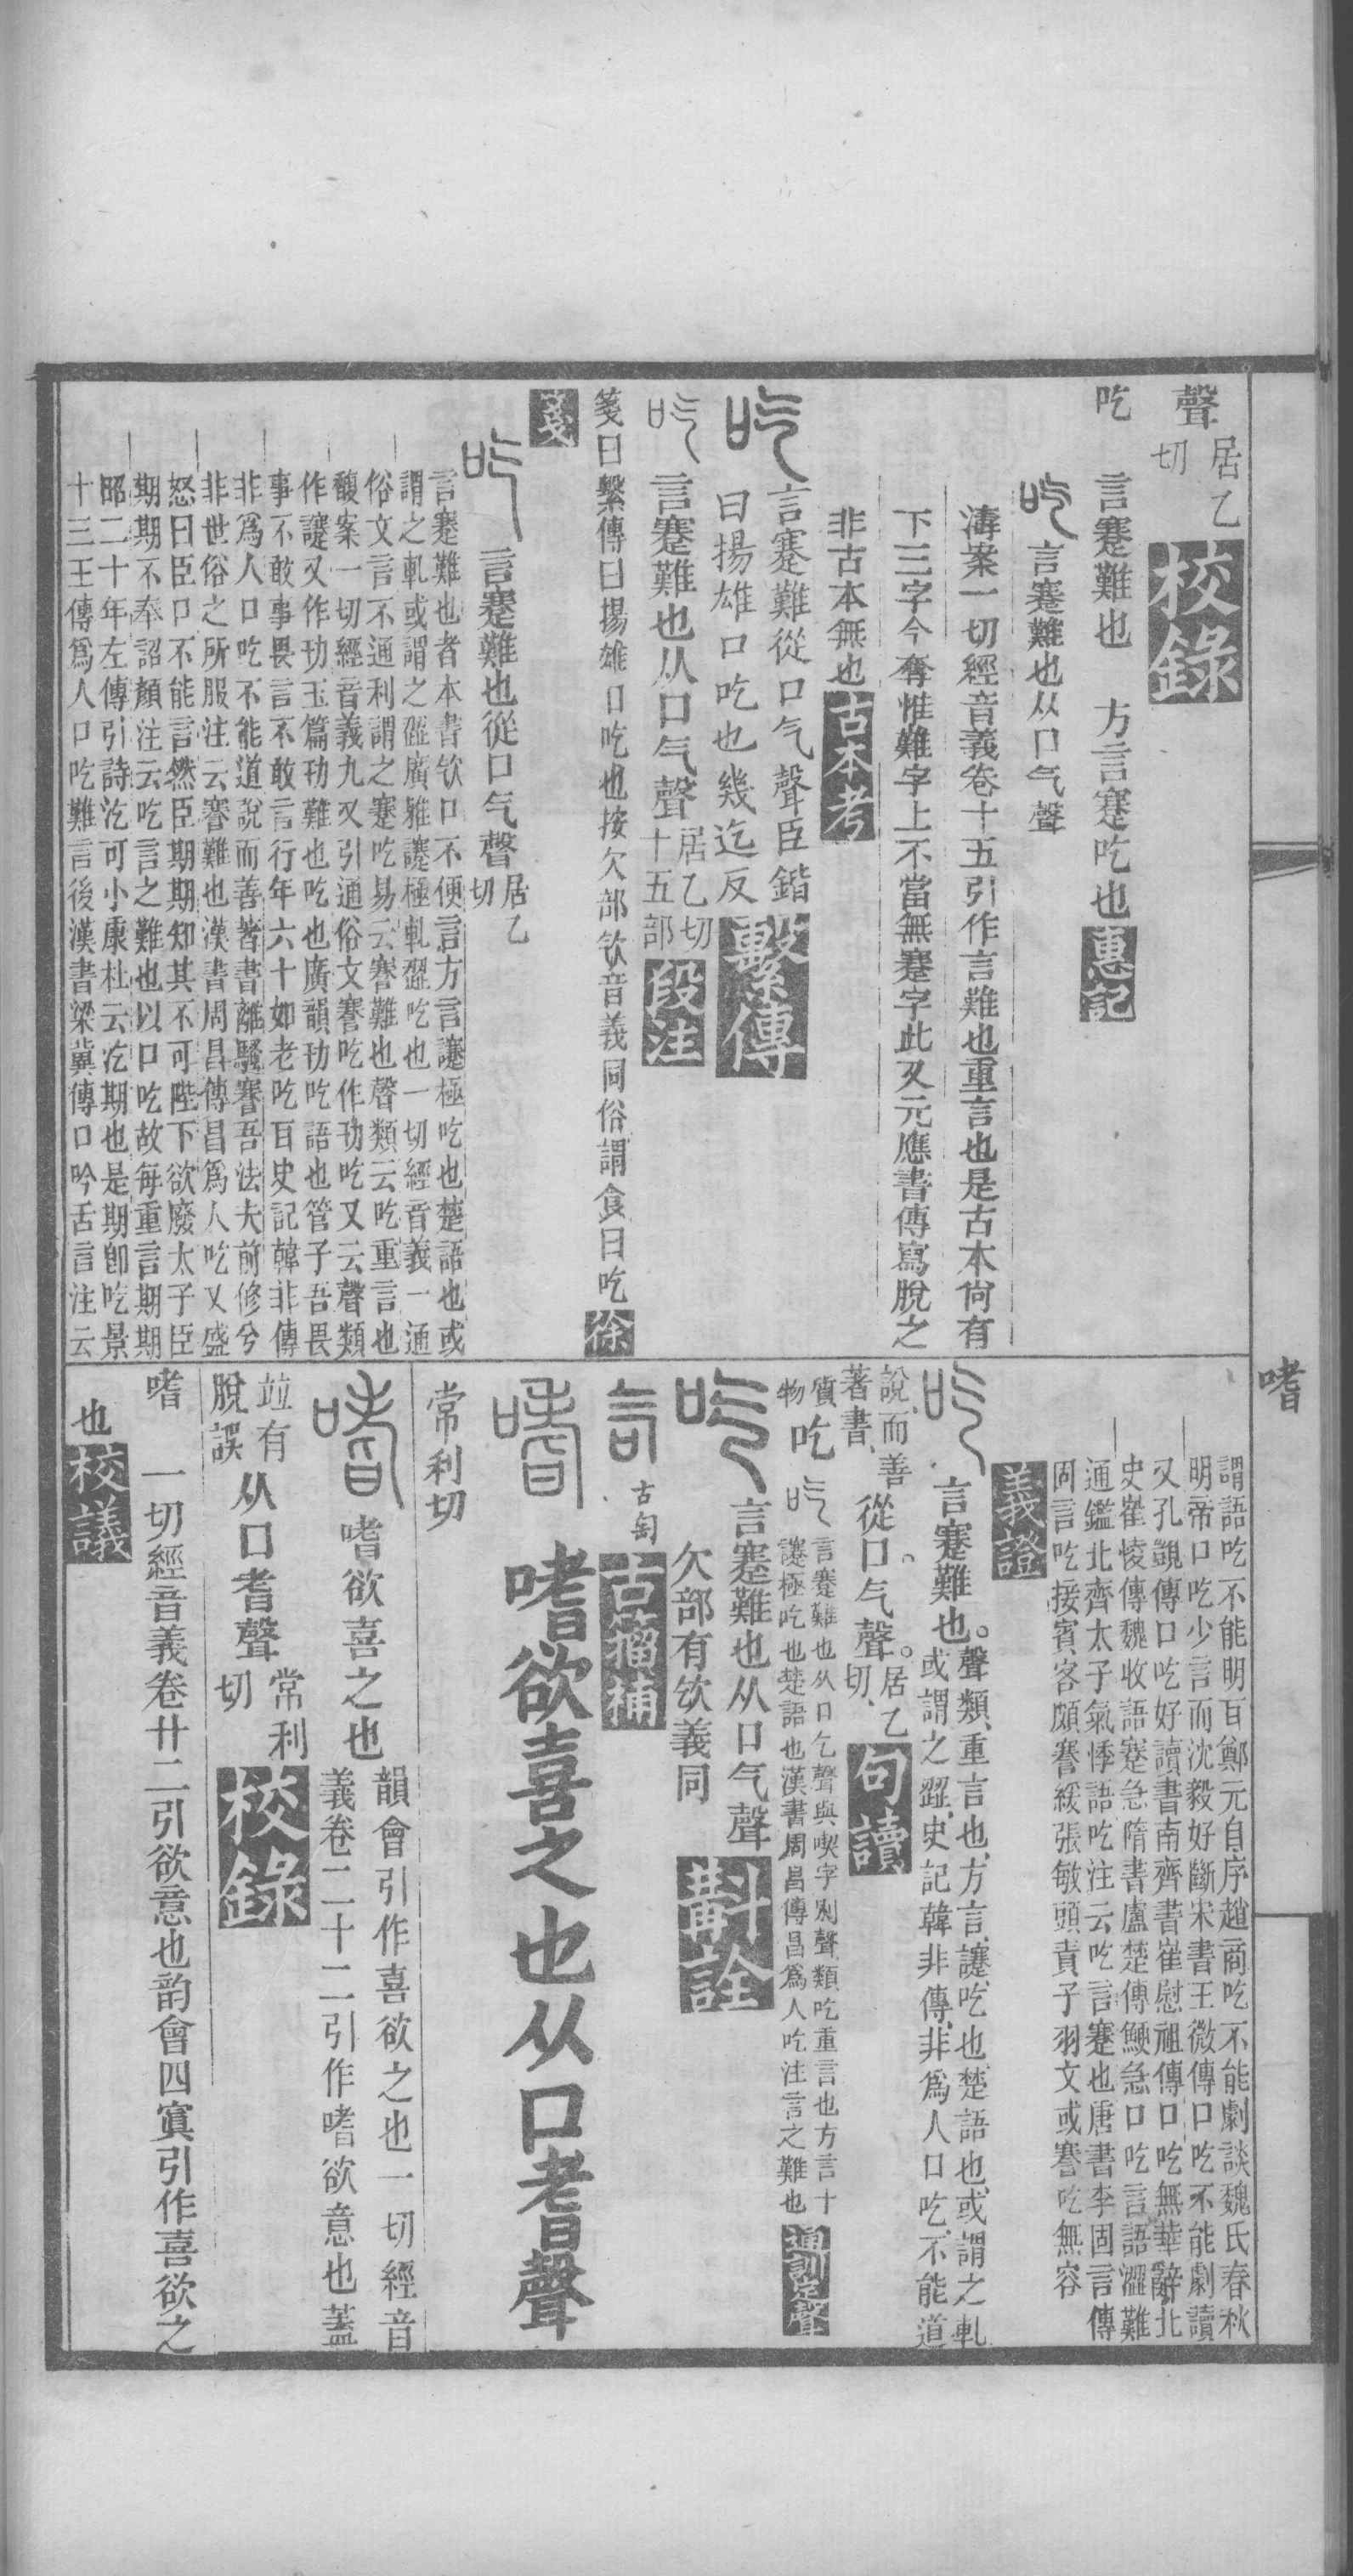 聲居乙切校錄
吃　言蹇難也　方言蹇吃也惠記
吃言蹇難也从口气聲
濤案一切經音義卷十五引作言難也重言也是古本尙有
下三字今奪惟難字上不當無蹇字此又元應書傳寫脫之
非古本無也古本考
吃言蹇難從口气聲臣鍇
曰揚雄口吃也幾迄反繫傳
吃言蹇難也从口气聲居乙切十五部段注
箋曰繫傳曰揚雄口吃也按欠部欥音義同俗謂食曰吃徐
箋
吃言蹇難也從口气聲居乙切
言蹇難也者本書欥口不便言方言讓極吃也楚語也或
謂之軋或謂之㴔廣雅讓極軋㴔吃也一切經音義一通
俗文言不通利謂之蹇吃易云謇難也聲類云吃重言也
馥案一切經音義九又引通俗文謇吃作㓛吃又云聲類
作讓又作㓛玉篇㓛難也吃也廣韻㓛吃語也管子吾畏
事不敢事畏言不敢言行年六十如老吃耳史記韓非傳
非爲人口吃不能道說而善著書離騷謇吾法夫前修兮
非世俗之所服注云謇難也漢書周昌傳昌爲人吃又盛
怒曰臣口不能言然臣期期知其不可陛下欲廢太子臣
期期不奉詔顏注云吃言之難也以口吃故每重言期期
昭二十年左傳引詩汔可小康杜云汔期也是期卽吃景
十三王傳爲人口吃難言後漢書梁冀傳口吟舌言注云
謂語吃不能明百鄭元自序趙商吃不能劇談魏氏春秋
明帝口吃少言而沈毅好斷宋書王微傳口吃不能劇讀
又孔覬傳口吃好讀書南齊書崔慰祖傳口吃無華辭北
史崔㥄傳魏收語蹇急隋書盧楚傳鯁急口吃言語澀難
通鑑北齊太子氣悸語吃注云吃言蹇也唐書李固言傳
固言吃接賓客頗謇緩張敏頭責子羽文或謇吃無容
義證
吃言蹇難也。聲類、重言也、方言、讓、吃也、楚語也、或謂之軋
或謂之㴔、史記韓非傳、非爲人口吃、不能道
說、而善著書、從口气聲。居乙切、句讀
吃　言蹇難也从口乞聲與喫字別聲類吃重言也方言十
讓極吃也楚語也漢書周昌傳昌爲人吃注言之難也　通訓定聲
質物
吃言蹇難也从口气聲
欠部有欥義同　斠詮
古匋　古籀補
嗜嗜欲喜之也从口耆聲
常利切
嗜嗜欲喜之也韻會引作喜欲之也一切經音
義卷二十二引作嗜欲意也蓋
竝有脫誤从口耆聲常利切校錄
嗜　一切經音義卷廿二引欲意也韵會四寘引作喜欲之
也校議
嗜